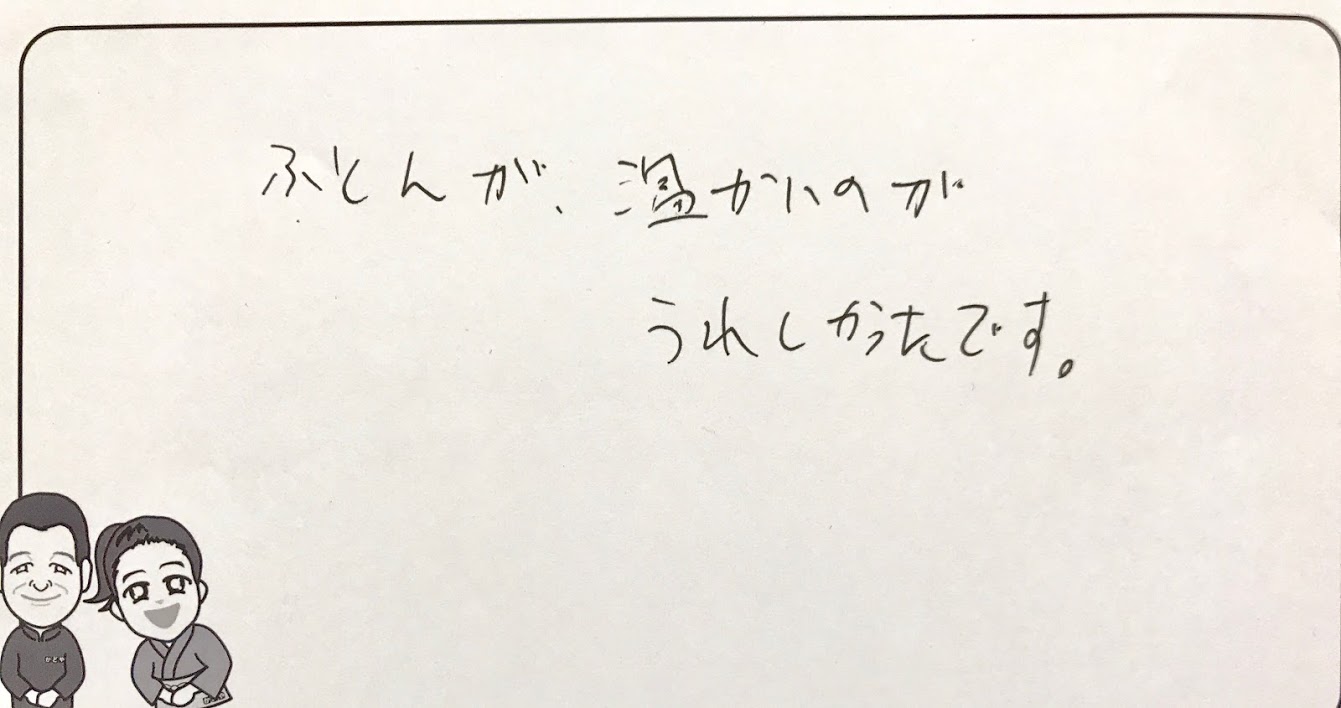 ふとんが、温かいのが
うれしかったです。
かどや